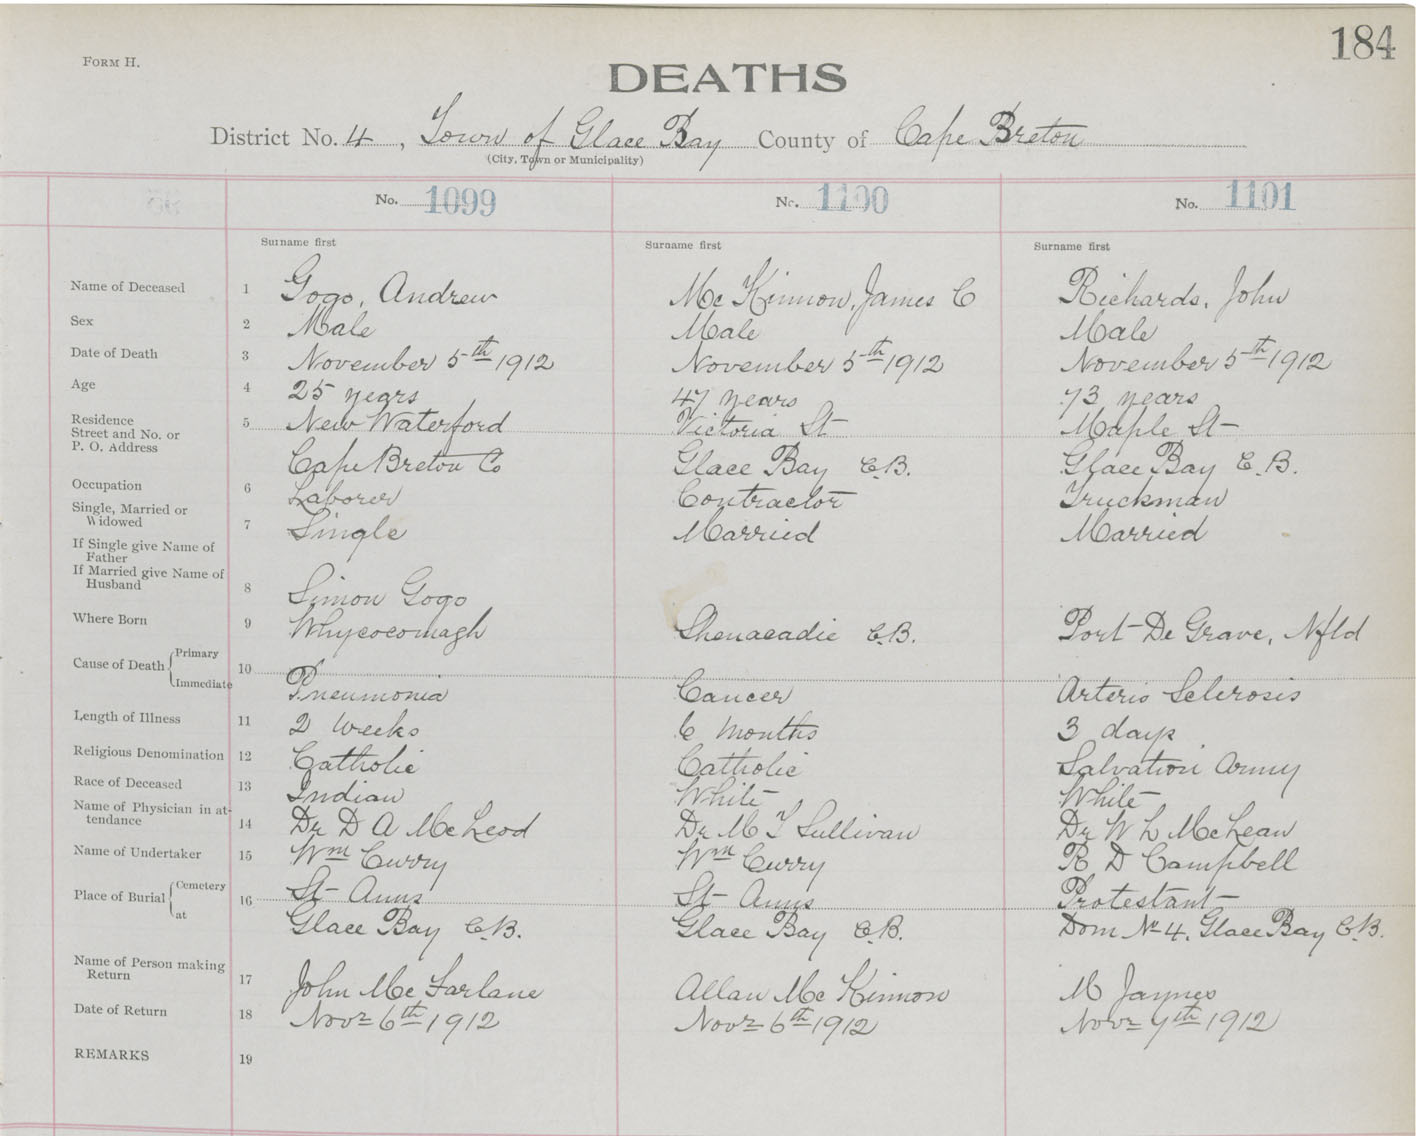 184
FORM H.
DEATHS
District No. 4, Town of Glace Bay County of Cape Breton
(City, Town or Municipality)
No. 1099 No. 1100 No. 1101
Surname first Surname first Surname first
Name of Deceased 1 Gogo, Andrew Mc Kinnon, James C Richards, John
Sex 2 Male Male Male
Date of Death 3 November 5th 1912 November 5th 1912 November 5th 1912
Age 4 25 years 47 years 73 years
Residence
Street and No. or
P. O. Address
5 New Waterford Victoria St Maple St
Cape Breton Co Glace Bay C.B. Glace Bay C.B.
Occupation 6 Laborer Contractor Truckman
Single, Married or
Widowed
7 Single Married Married
If Single give Name of
Father
If Married give Name of
Husband
8 Simon Gogo
Where Born 9 Whycocomagh Shenacadie C.B. Port De Grave, Nfld
Cause of Death { Primary
Immediate
10 Pneumonia Cancer Arterio Sclerosis
Length of Illness 11 2 weeks 6 months 3 days
Religious Denomination 12 Catholic Catholic Salvation Army
Race of Deceased 13 Indian White White
Name of Physician in at-
tendance
14 Dr D A McLeod Dr M T Sullivan Dr W L McLean
Name of Undertaker 15 Wm Curry Wm Curry R D Campbell
Place of Burial { Cemetery
at
16 St Anns St Anns Protestant
Glace Bay C.B. Glace Bay C.B. Dom No 4, Glace Bay C.B.
Name of Person making
Return
17 John Mc Farlane Allan Mc Kinnon M Jaynes
Date of Return 18 Novr 6th 1912 Novr 6th 1912 Novr 7th 1912
REMARKS 19